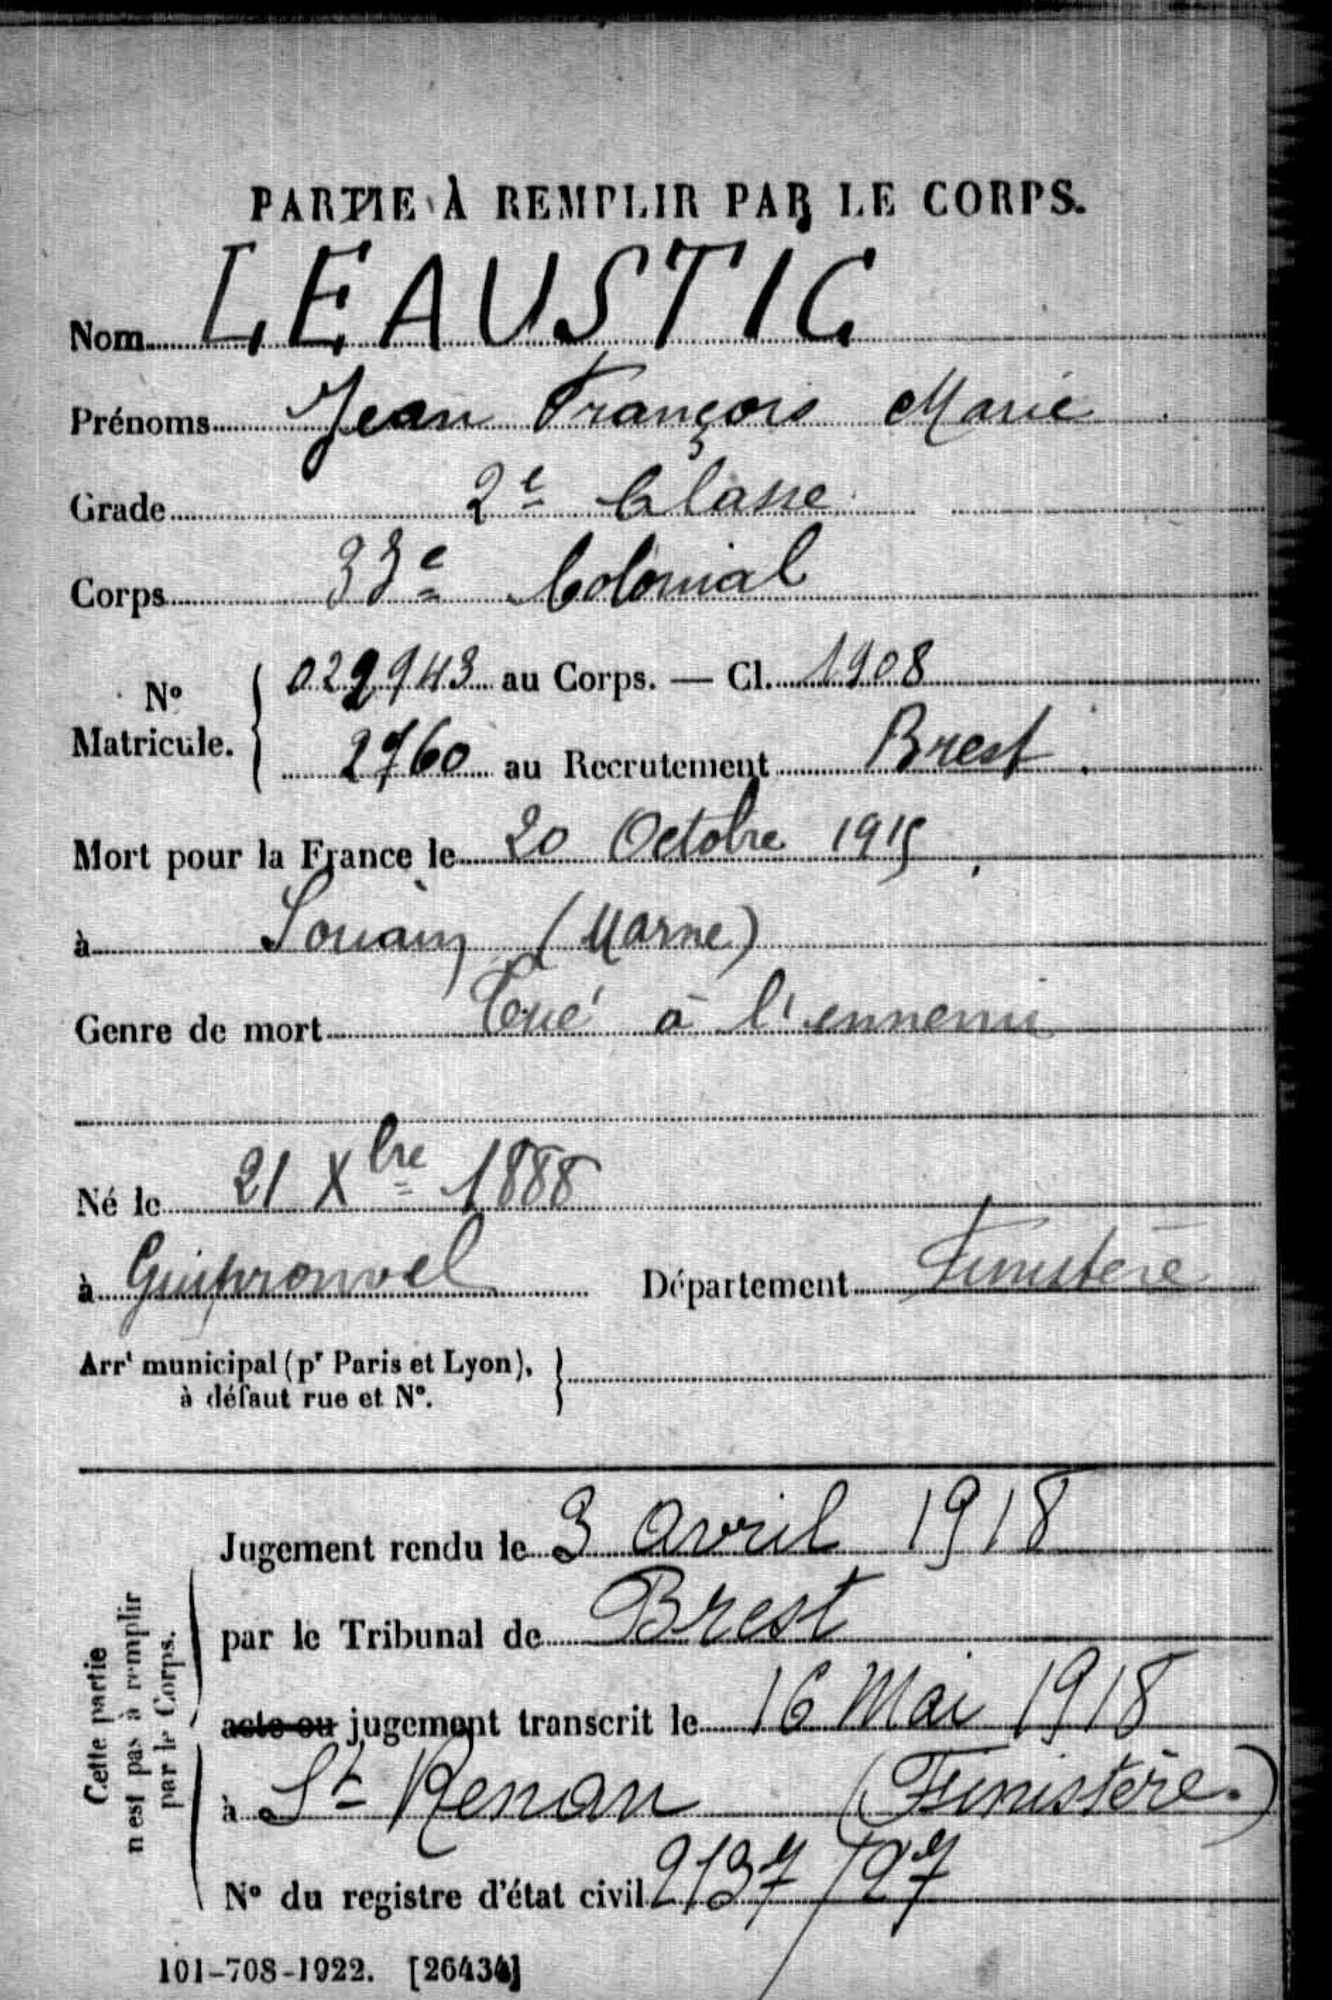 PARTIE À REMPLIR PAR LE CORPS.
Nom LEAUSTIC
Prénoms Jean François Marie
Grade 2e Classe
Corps 33e Colonial
N° Matricule. { 029943 au Corps. — Cl. 1908
2760 au Recrutement Brest
Mort pour la France le 20 Octobre 1915
à Souain (Marne)
Genre de mort Tué à l'ennemi
Né le 21 Xbre 1888
à Guipronvel Département Finistère
Arrt municipal (pr Paris et Lyon), }
à défaut rue et N°.
Cette partie
n'est pas à remplir
par le Corps.
Jugement rendu le 3 Avril 1918
par le Tribunal de Brest
acte ou jugement transcrit le 16 Mai 1918
à St Renan (Finistère.)
N° du registre d'état civil 2137/27
101-708-1922. [26434]